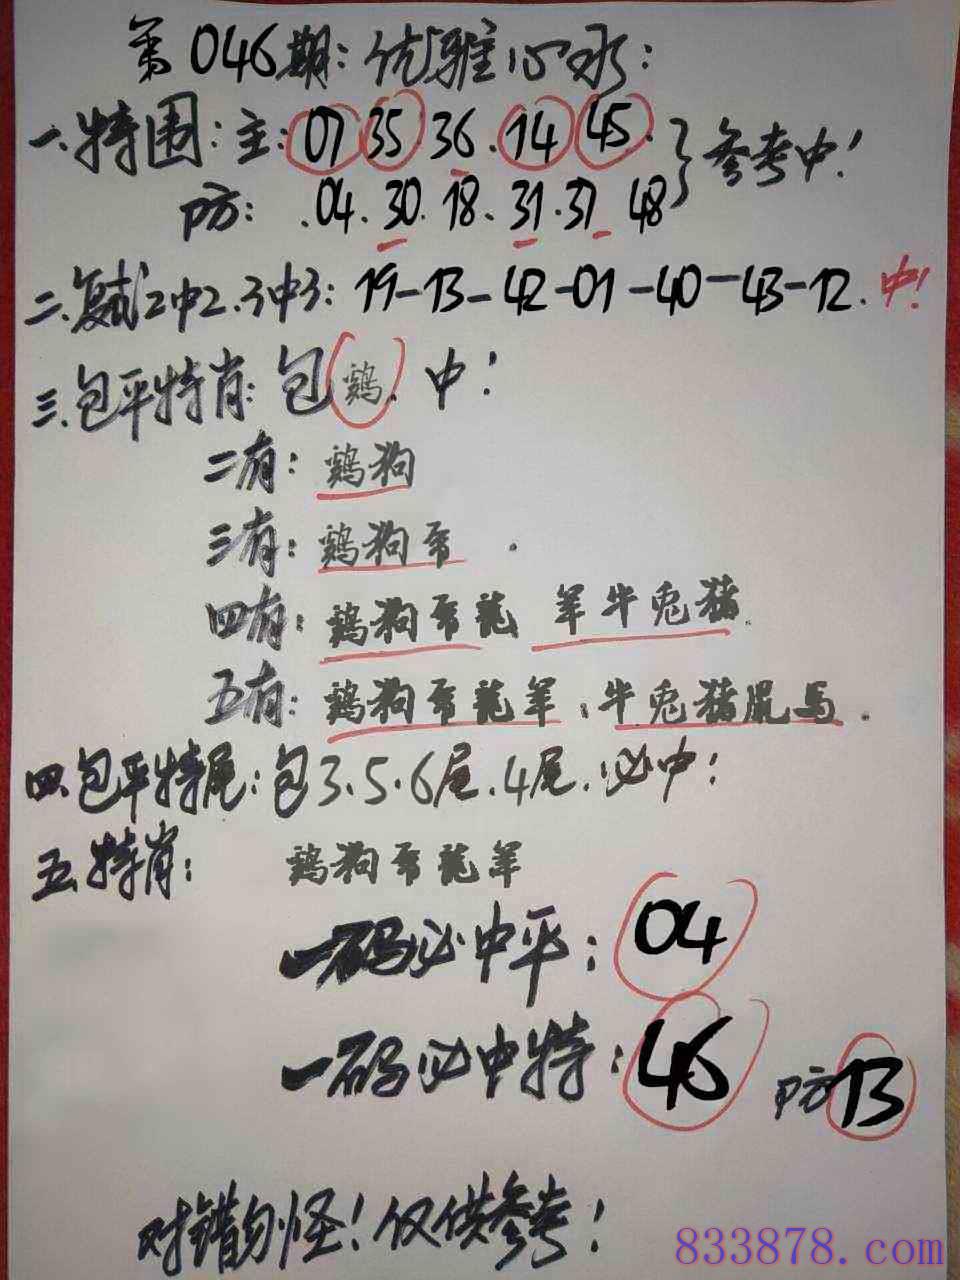 第046期:优雅心水:
一.特围:主:07 35.36.14 45.}参考中!
防:.04.30.18.31.37 48
二.复试2中2.3中3:19-13-42-01-40-43-12.中!
三.包平特肖:包鸡.中!
二有:鸡狗
三有:鸡狗.
四有:鸡狗龙 羊牛兔猪.
五有:鸡狗龙羊;牛兔猪鼠马.
四.包平特尾:包3.5.6尾.4尾.必中!
五.特肖:鸡狗龙羊
一码必中平:04
一码必中特:46 防13
对错勿怪!仅供参考!
833878.com